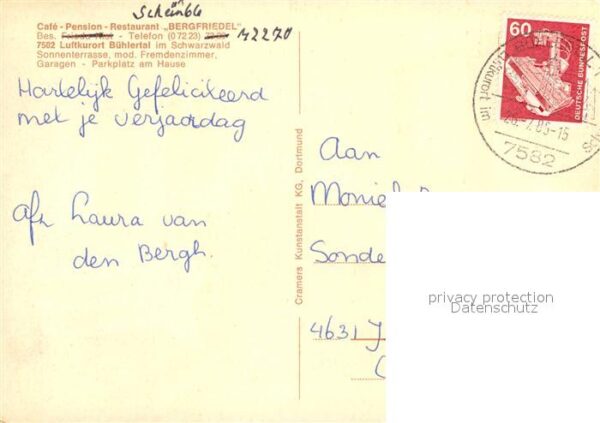 Café - Pension - Restaurant „BERGFRIEDEL"
Bes. - Telefon (0 72 23) 42270
7582 Luftkurort Bühlertal im Schwarzwald
Sonnenterrasse, mod. Fremdenzimmer,
Garagen - Parkplatz am Hause
Hartelijk Gefeliciteerd
met je verjaardag
afz Laura van
den Bergh.
Cramers Kunstanstalt KG, Dortmund
60
DEUTSCHE BUNDESPOST
Luftkurort im
7582
Aan
Sonde
4631
privacy protection
Datenschutz